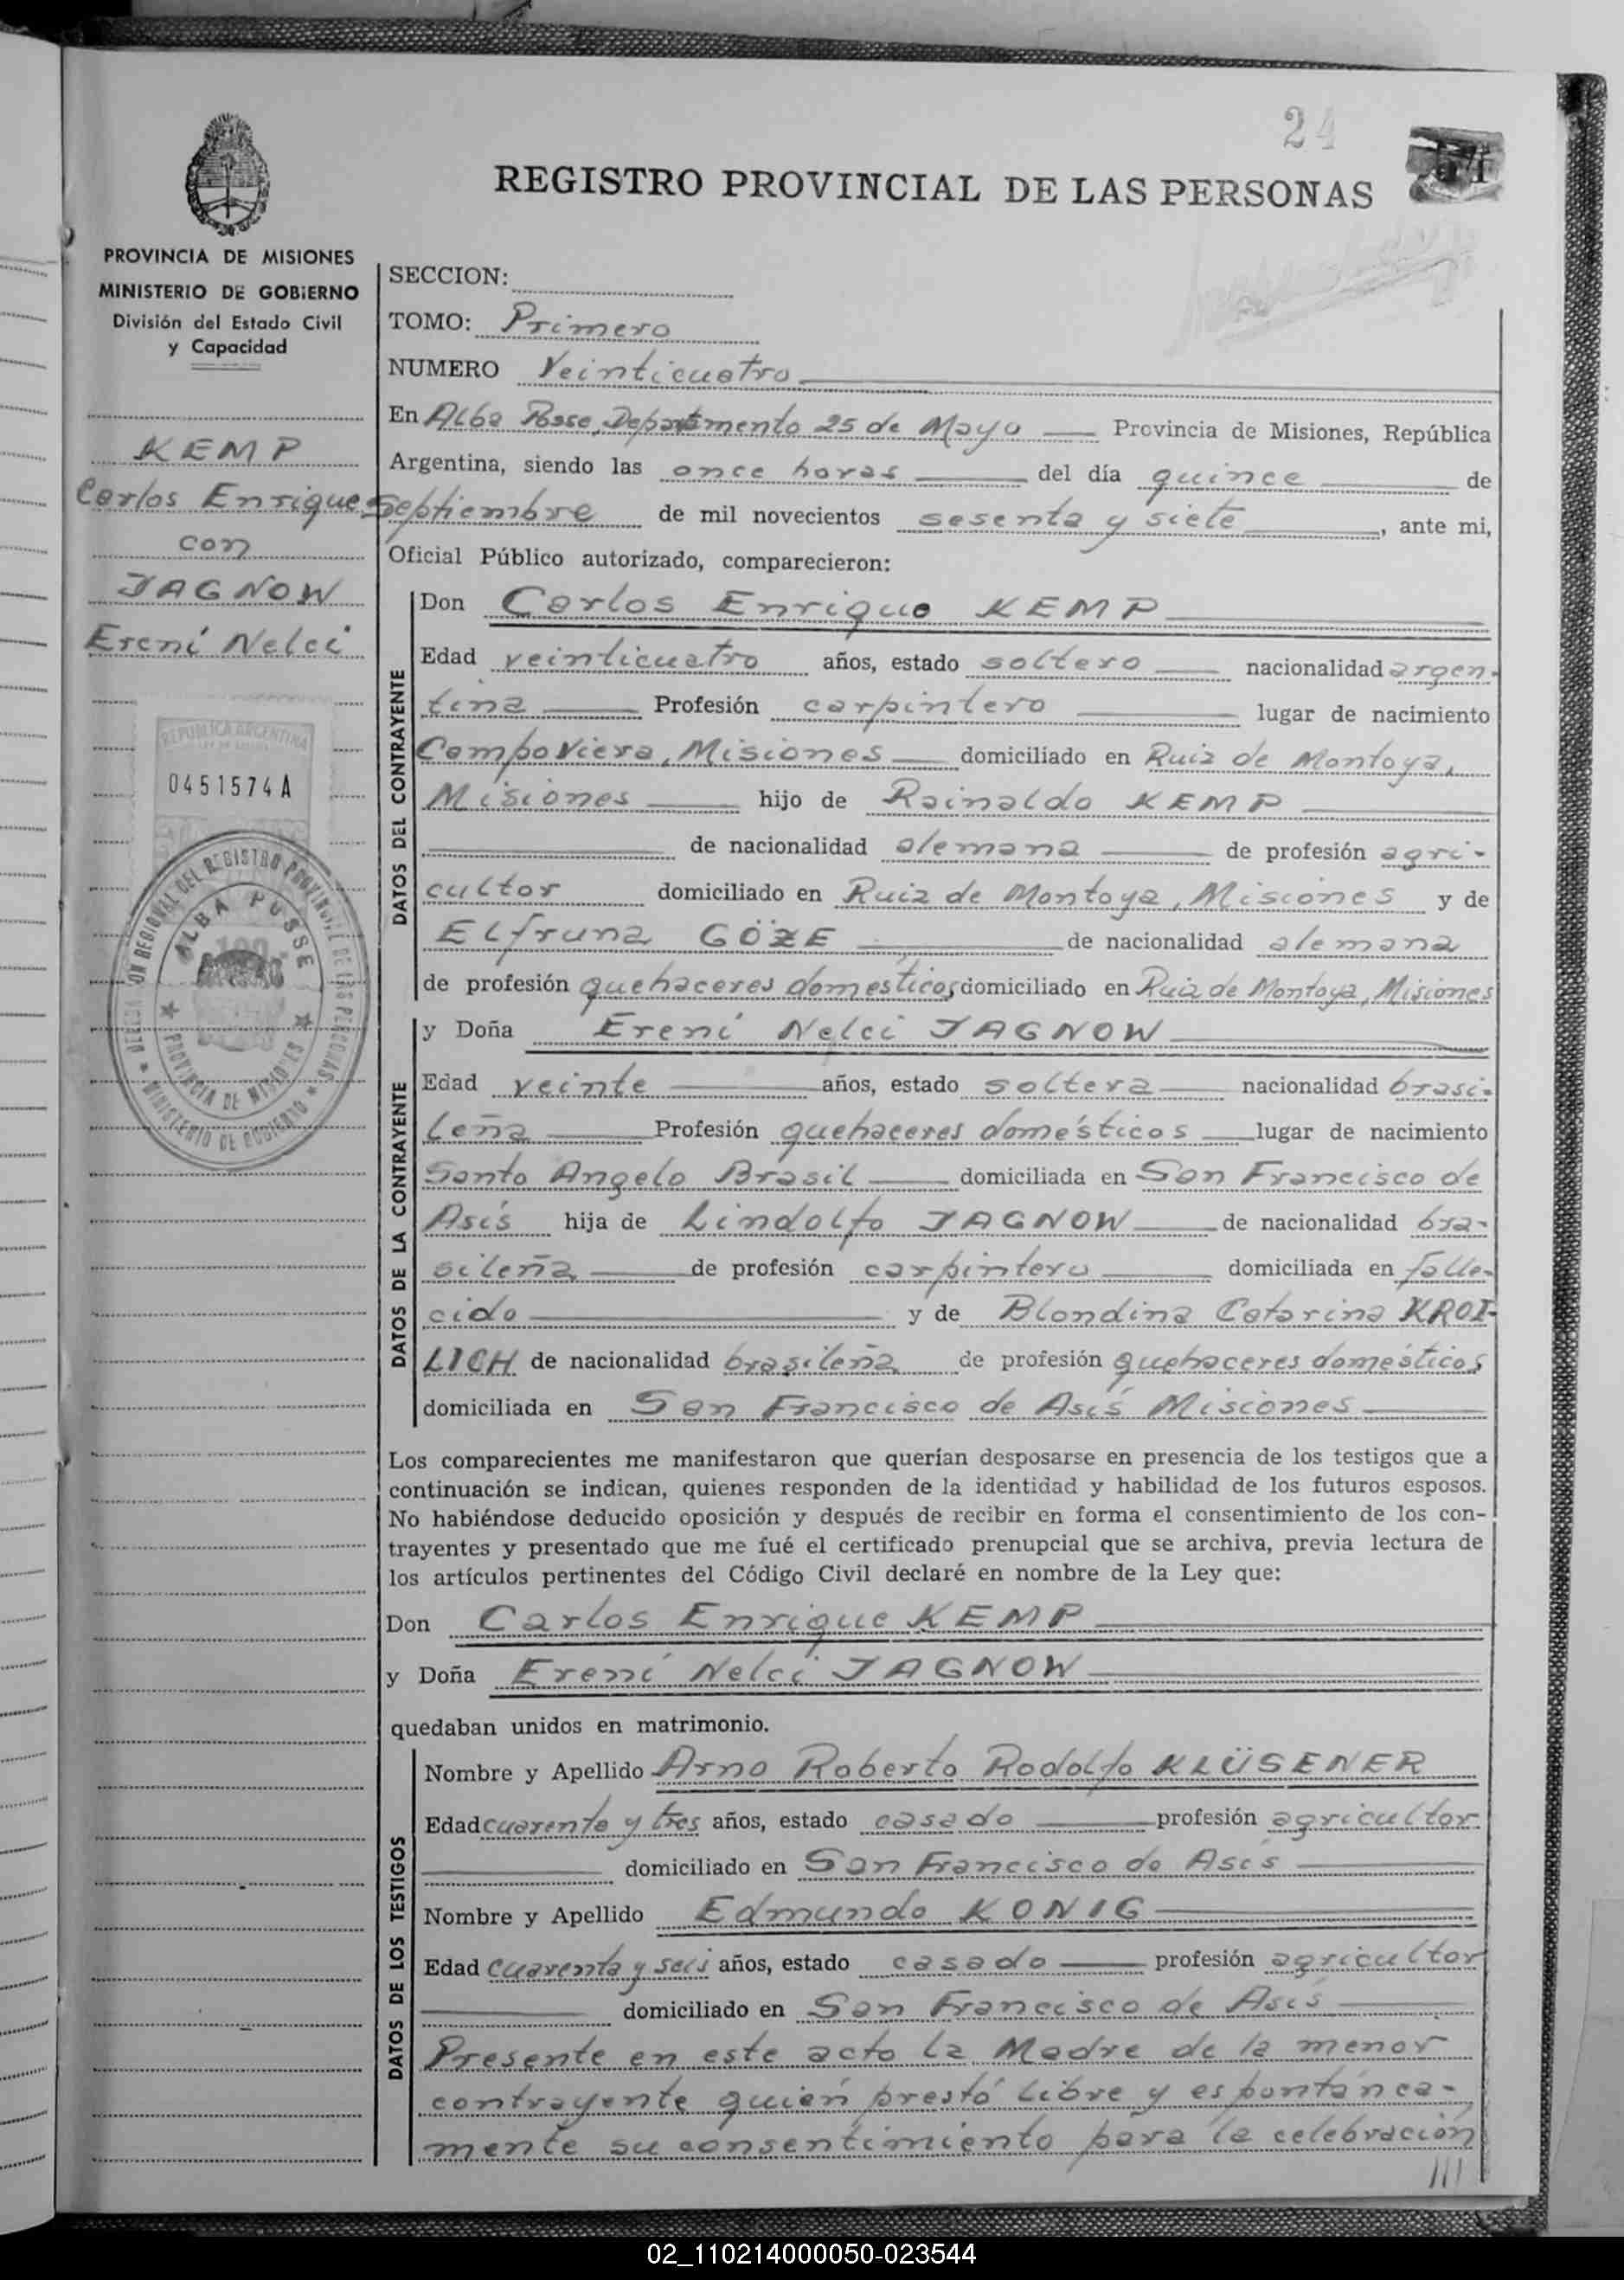 24
REGISTRO PROVINCIAL DE LAS PERSONAS
PROVINCIA DE MISIONES
MINISTERIO DE GOBIERNO
División del Estado Civil
y Capacidad
KEMP
Carlos Enrique
con
JAGNOW
Erení Nelci
REPUBLICA ARGENTINA
0451574A
DELEGACION REGIONAL DEL REGISTRO PROVINCIAL DE LAS PERSONAS
ALBA POSSE
100
PROVINCIA DE MISIONES
MINISTERIO DE GOBIERNO
SECCION:
TOMO: Primero
NUMERO Veinticuatro
En Alba Posse, Departamento 25 de Mayo Provincia de Misiones, República
Argentina, siendo las once horas del día quince de
septiembre de mil novecientos sesenta y siete, ante mi,
Oficial Público autorizado, comparecieron:
DATOS DEL CONTRAYENTE
Don Carlos Enrique KEMP
Edad veinticuatro años, estado soltero nacionalidad argen-
tina Profesión carpintero lugar de nacimiento
Campo Viera, Misiones domiciliado en Ruiz de Montoya,
Misiones hijo de Rainaldo KEMP
de nacionalidad alemana de profesión agri-
cultor domiciliado en Ruiz de Montoya, Misiones y de
Elfruna GÖZE de nacionalidad alemana
de profesión quehaceres domésticos domiciliado en Ruiz de Montoya, Misiones
DATOS DE LA CONTRAYENTE
y Doña Erení Nelci JAGNOW
Edad veinte años, estado soltera nacionalidad brasi-
leña Profesión quehaceres domésticos lugar de nacimiento
Santo Angelo Brasil domiciliada en San Francisco de
Asís hija de Lindolfo JAGNOW de nacionalidad bra-
sileña de profesión carpintero domiciliada en falle-
cido y de Blondina Catarina KROI-
LICH de nacionalidad brasileña de profesión quehaceres domésticos
domiciliada en San Francisco de Asís Misiones
Los comparecientes me manifestaron que querían desposarse en presencia de los testigos que a
continuación se indican, quienes responden de la identidad y habilidad de los futuros esposos.
No habiéndose deducido oposición y después de recibir en forma el consentimiento de los con-
trayentes y presentado que me fué el certificado prenupcial que se archiva, previa lectura de
los artículos pertinentes del Código Civil declaré en nombre de la Ley que:
Don Carlos Enrique KEMP
y Doña Erení Nelci JAGNOW
quedaban unidos en matrimonio.
DATOS DE LOS TESTIGOS
Nombre y Apellido Arno Roberto Rodolfo KLÜSENER
Edad cuarenta y tres años, estado casado profesión agricultor
domiciliado en San Francisco de Asís
Nombre y Apellido Edmundo KONIG
Edad cuarenta y seis años, estado casado profesión agricultor
domiciliado en San Francisco de Asís
Presente en este acto la Madre de la menor
contrayente quien prestó libre y espontánea-
mente su consentimiento para la celebración
///
02_110214000050-023544